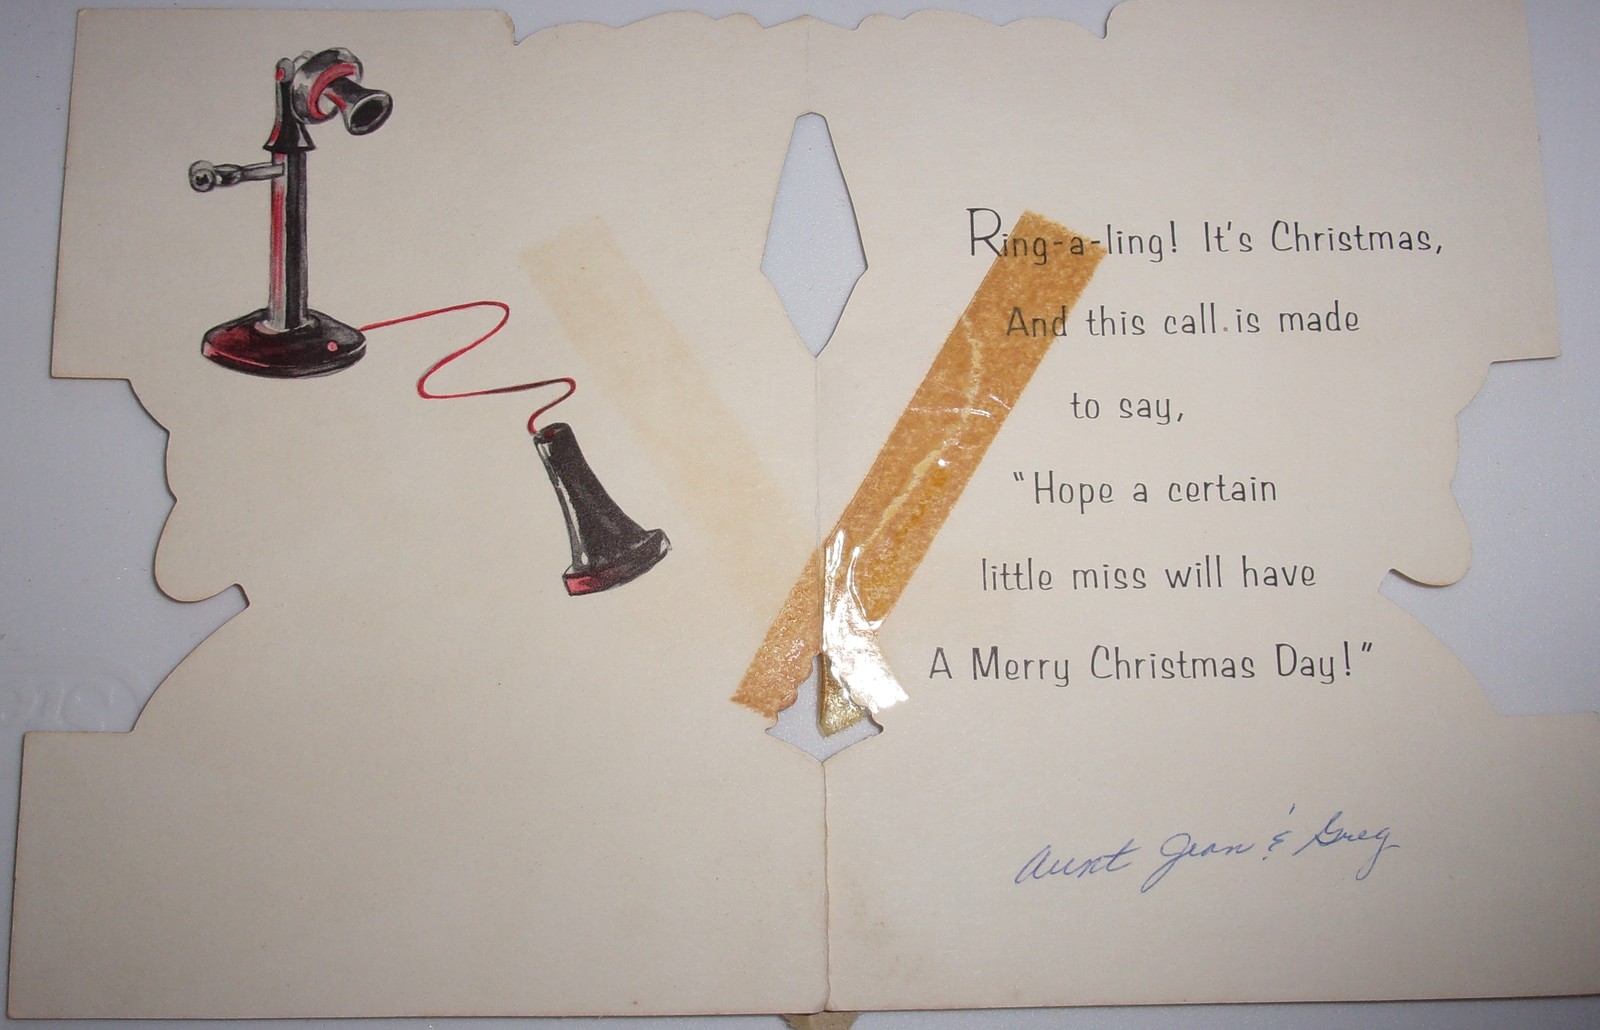 Ring-a-ling! It's Christmas,
And this call is made
to say,
"Hope a certain
little miss will have
A Merry Christmas Day!"
Aunt Jean & Greg